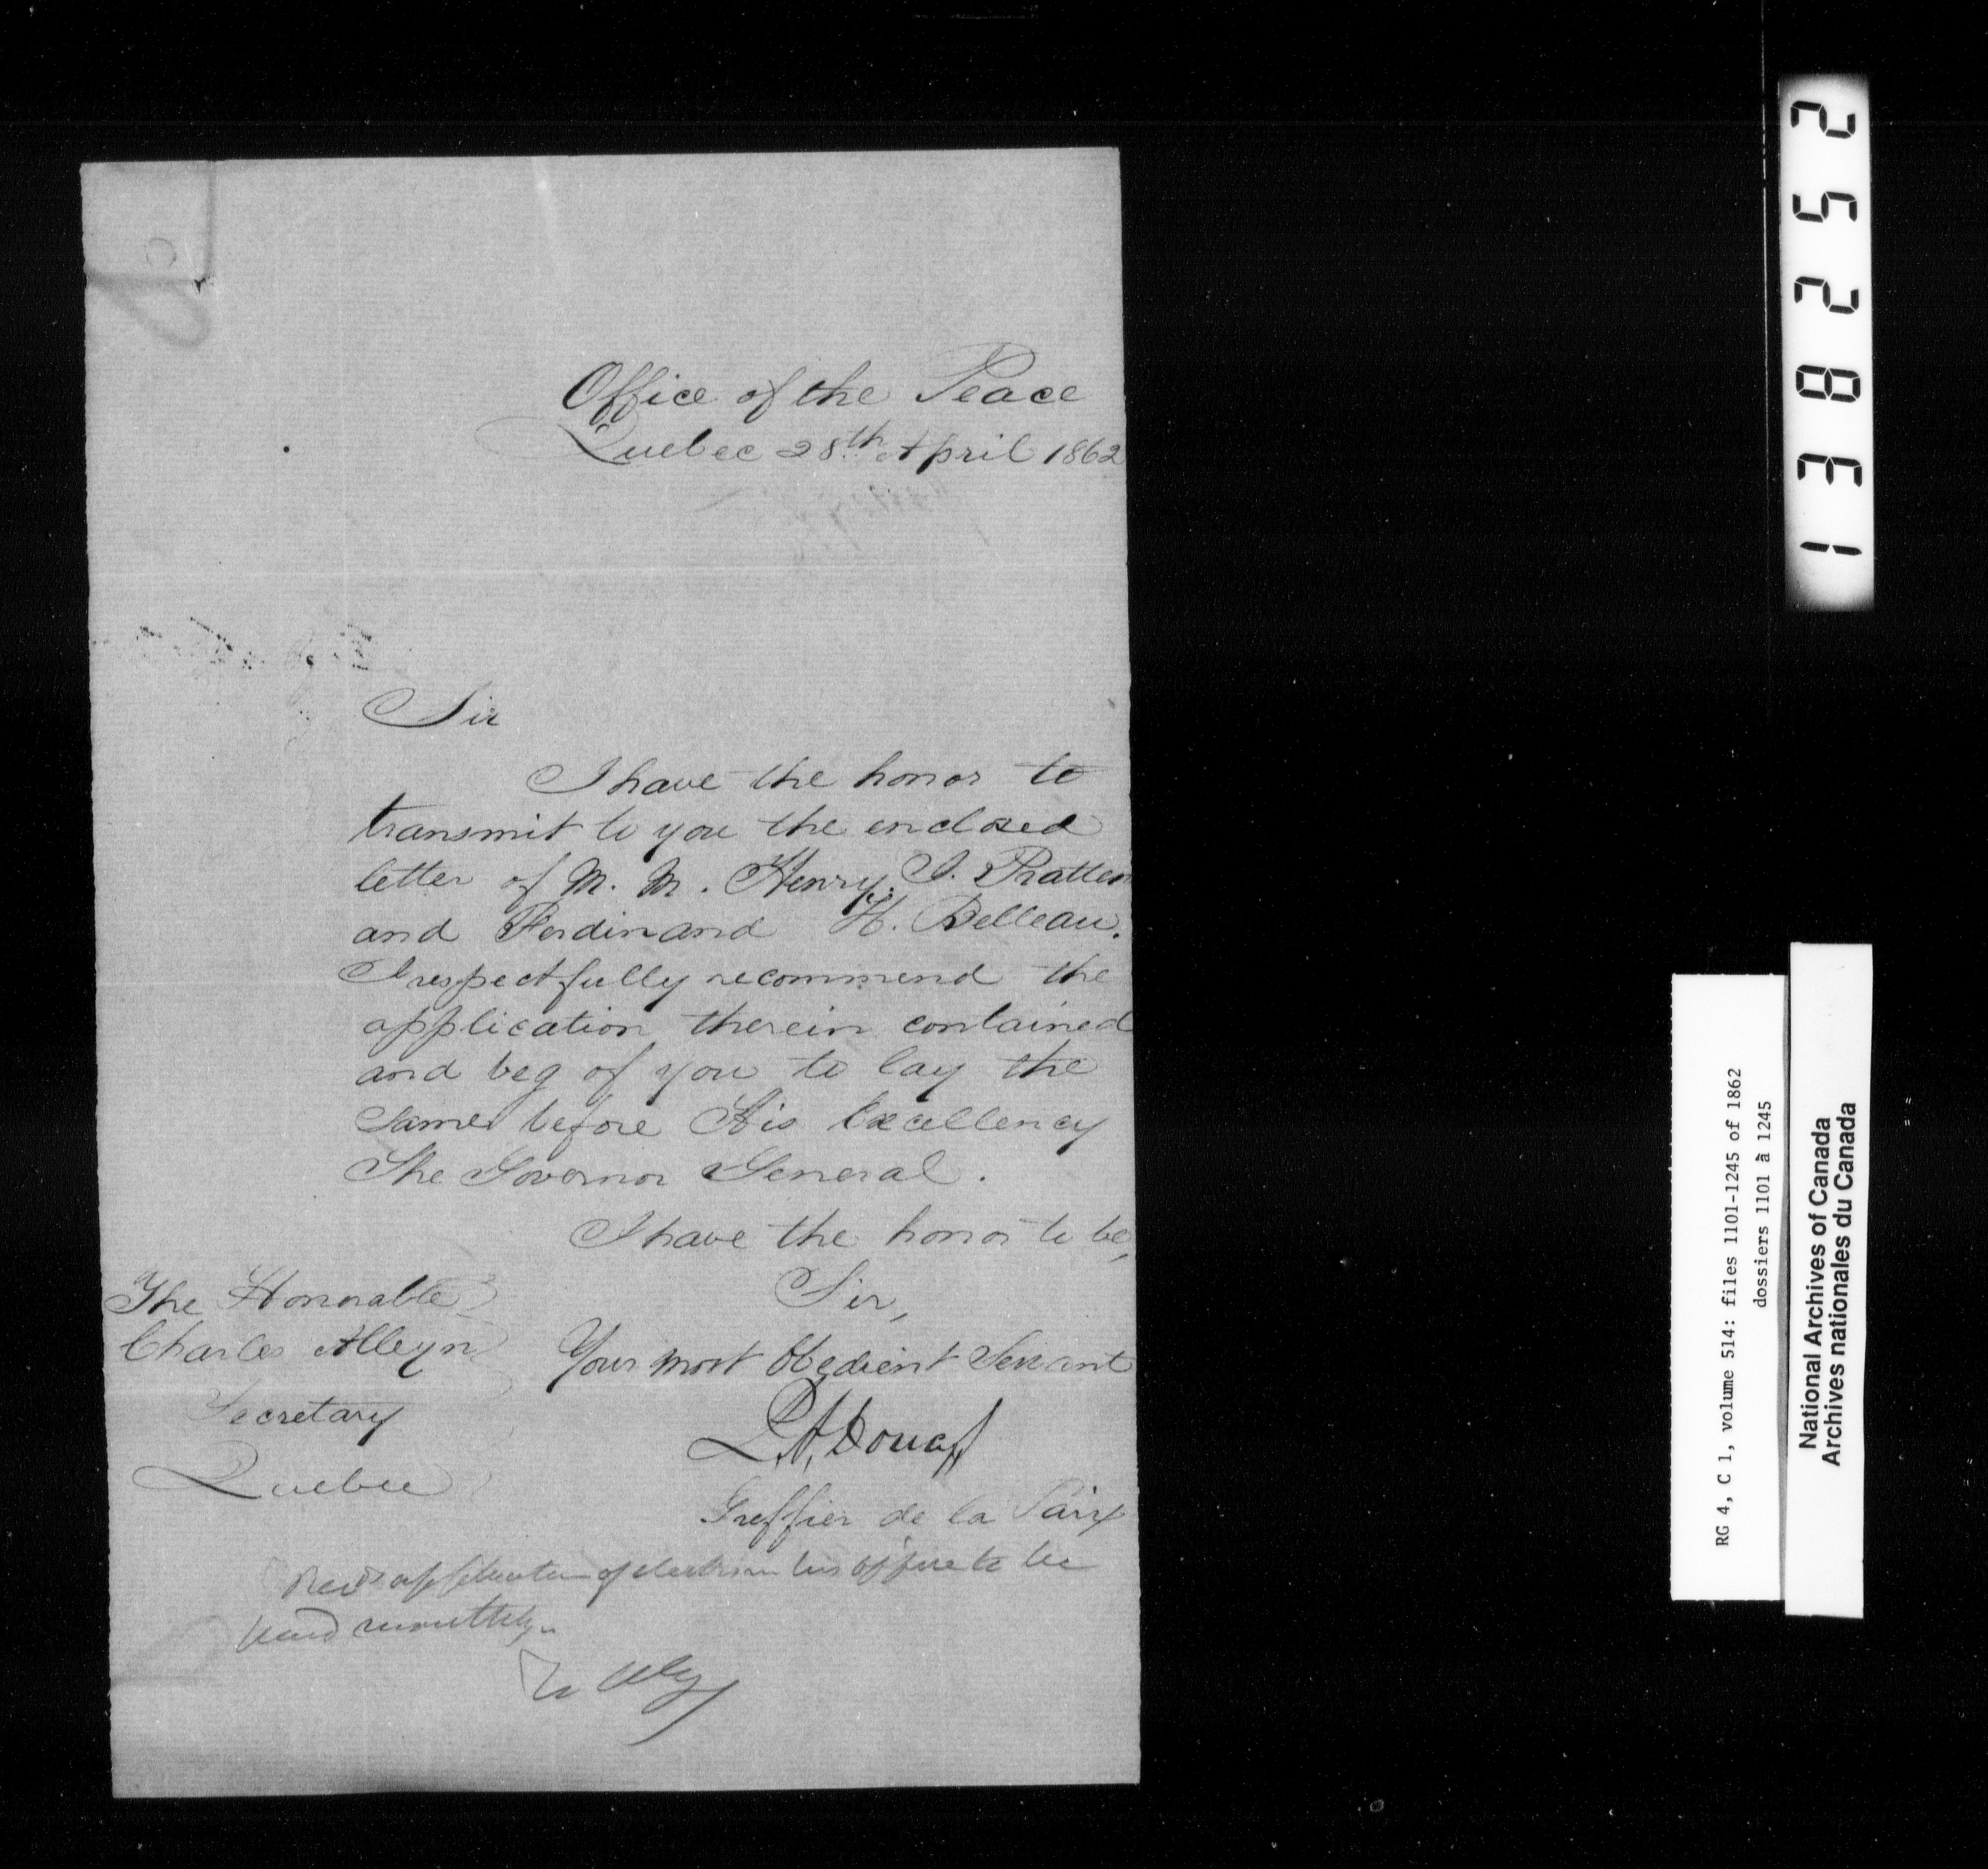 Office of the Peace
Quebec 28th April 1862
Sir
I have the honor to
transmit to you the enclosed
letter of M. M. Henry J. Pratten
and Ferdinand H. Belleau.
I respectfully recommend the
application therein contained
and beg of you to lay the
same before His Excellency
The Governor General.
I have the honor to be,
Sir,
Your most Obedient Servant
Greffier de la Paix
The Honorable
Charles Alleyn
Secretary
Quebec
of in his office to be
paid monthly
138252
RG 4, C 1, volume 514: files 1101-1245 of 1862
dossiers 1101 à 1245
National Archives of Canada
Archives nationales du Canada